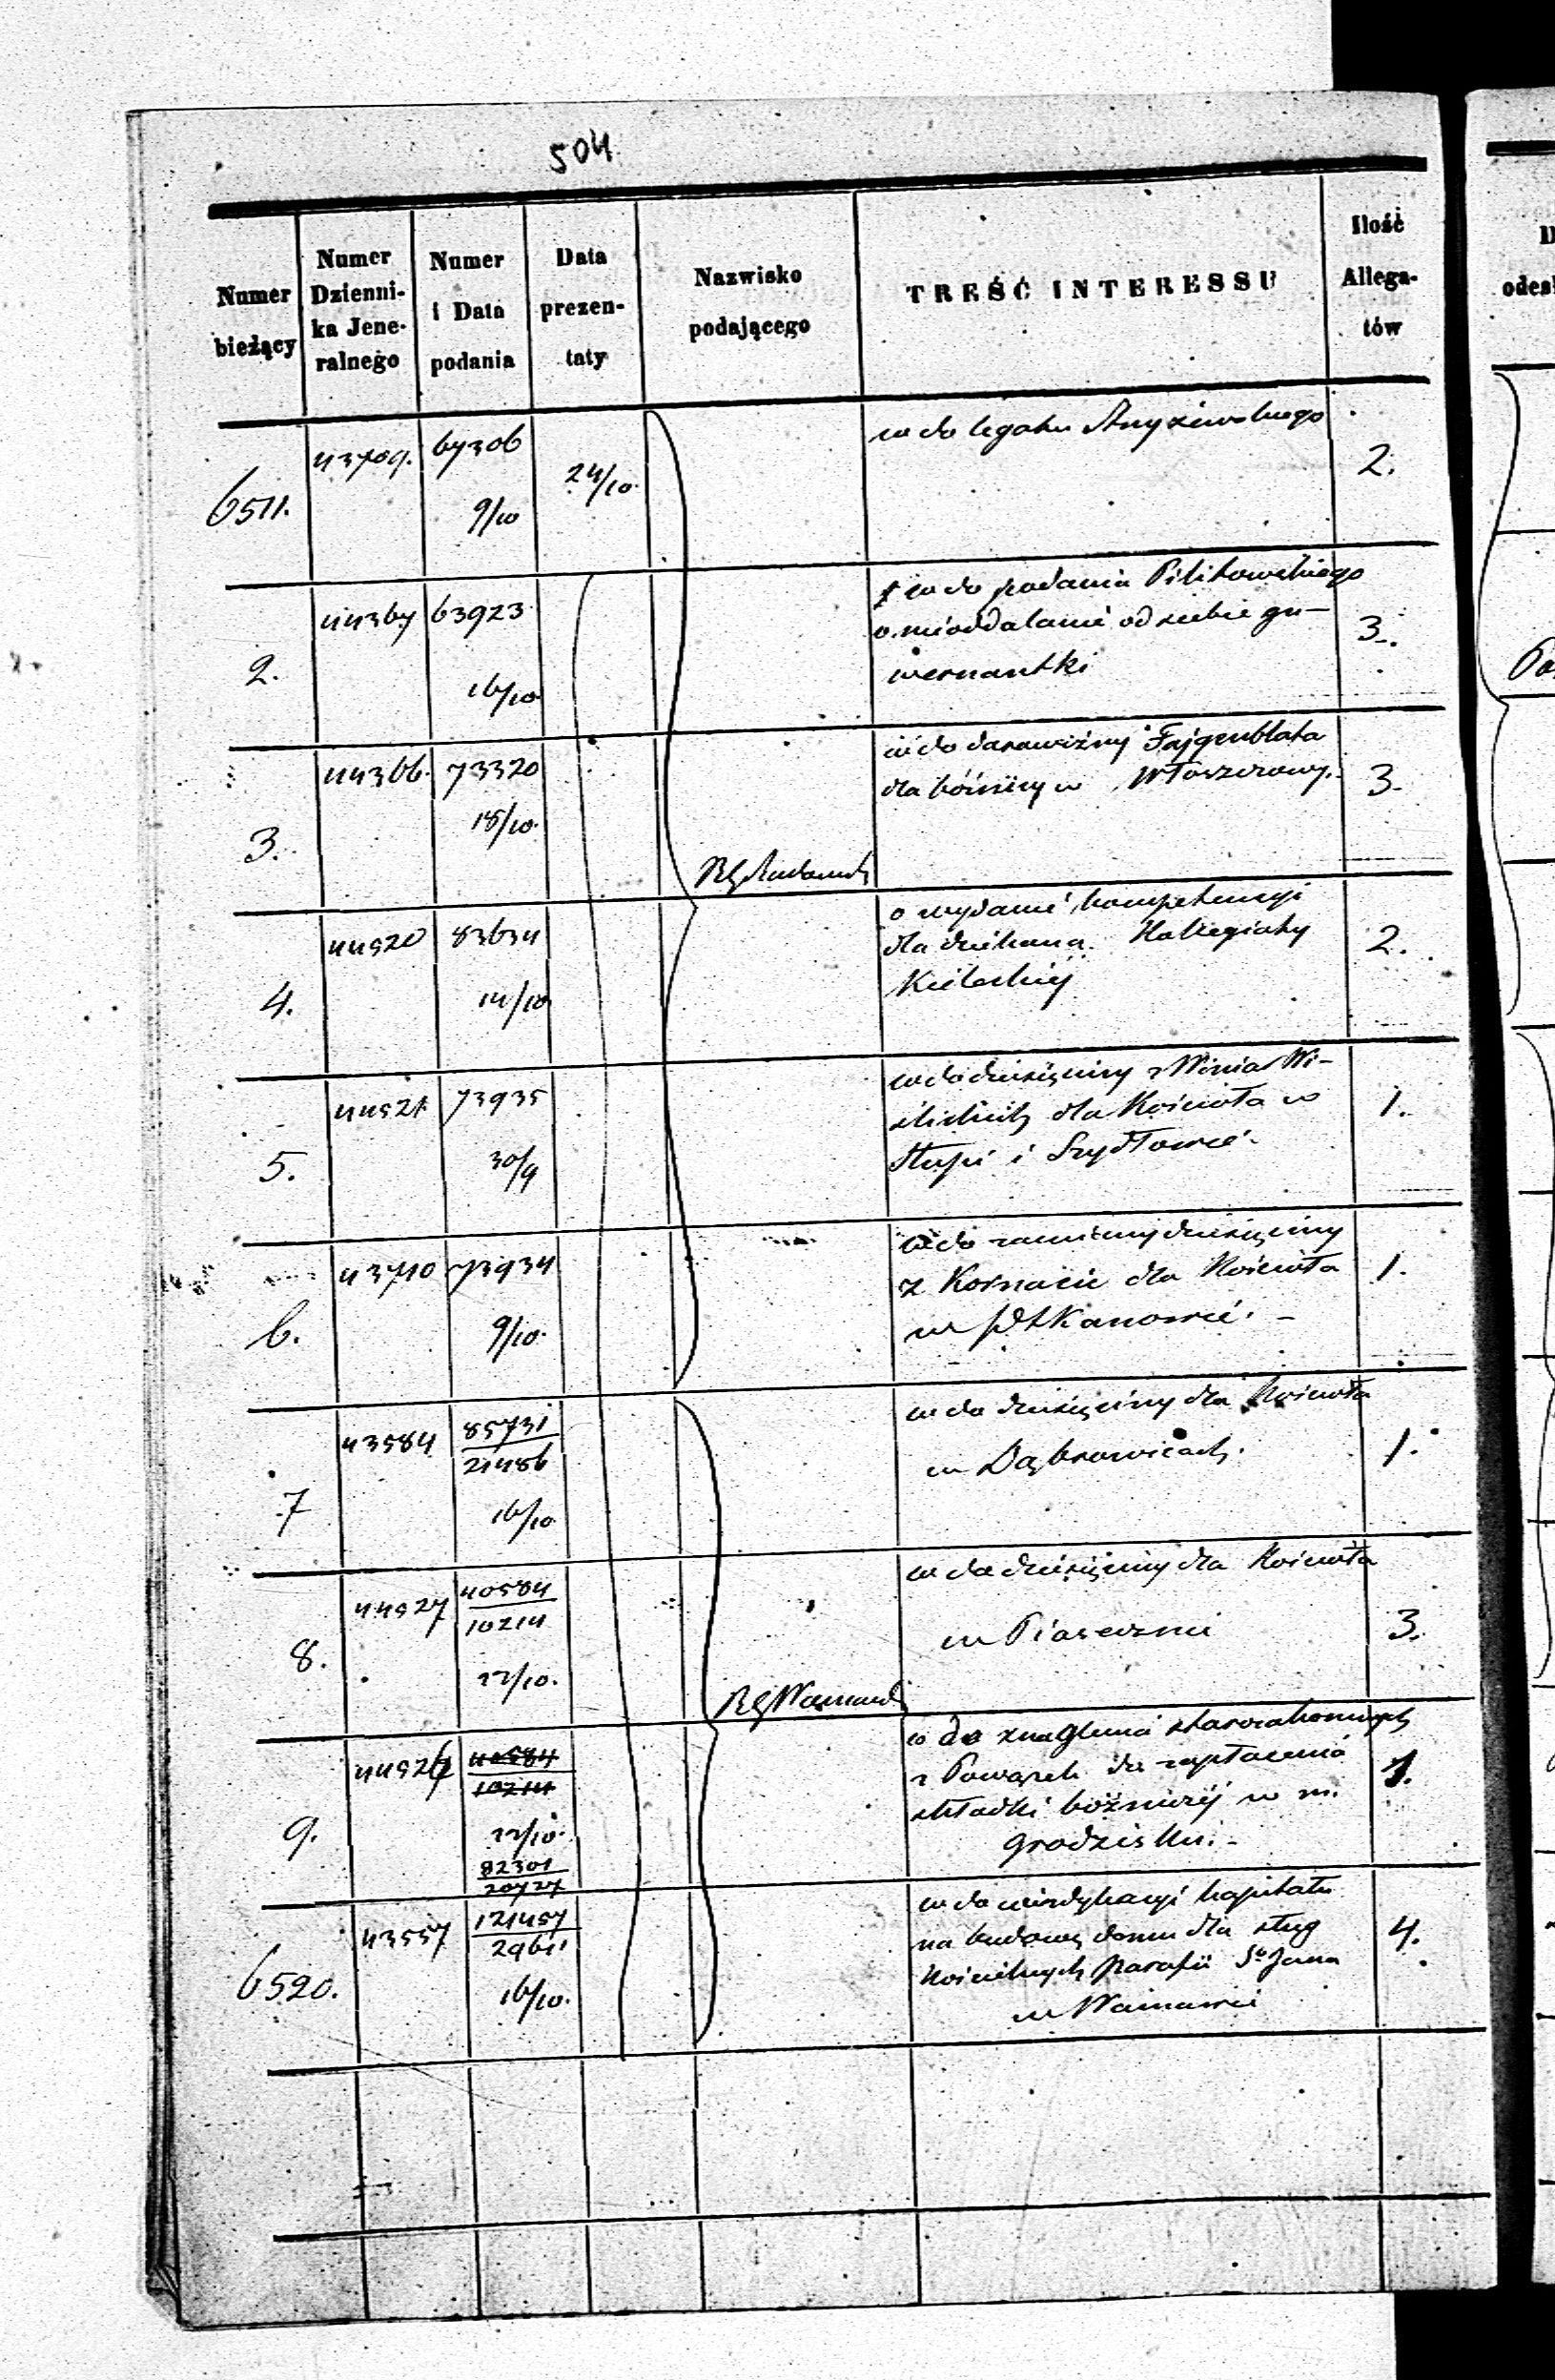 504
Numer bieżący
Numer Dzienni-ka Jene-ralnego
Numer i Data podania
Data prezen-taty
Nazwisko podającego
TREŚĆ INTERESSU
Ilość Allega-tów
6511.
43709.
67306
9/10
24/10.
w do legatu
2.
2.
44367
63923
16/10.
w do podania Pilitowskiego
o nieoddalanie od siebie gu-
wernantki
3.
3.
44366.
73320
18/10.
w do darowizny Fajgenblata
dla bóżnicy w Włoszczowy.
3.
4.
44520
83634
14/10
o wydanie kompetencyi
dla dziekana Kollegiaty
Kieleckiéj
2.
5.
44521
73935
30/9
w do dziesięciny z Winiar Wi-
ślickich dla Kościoła w
Słupi i Szydłowie
1.
6.
43710
73934
9/10.
w do zamiany dziesięciny
z Kornacic dla Kościoła
w Ptkanowie.
1.
7
43584
85731
21486
16/10
w do dziesięciny dla Kościoła
w Dąbrowicach.
1.
8.
44527
40584
10214
22/10.
w do dziesięciny dla Kościoła
w Piasecznie
3.
9.
44526
40584
10214
22/10.
82301
20727
w do znaglenia starozakonnych
z Powązek do zapłacenia
składki bóżniczéj w m.
Grodzisku.
1.
6520.
43557
121457
29611
16/10.
w do windykacyi kapitału
na budowę domu dla sług
Kościelnych Parafii St Jana
w Warszawie
4.